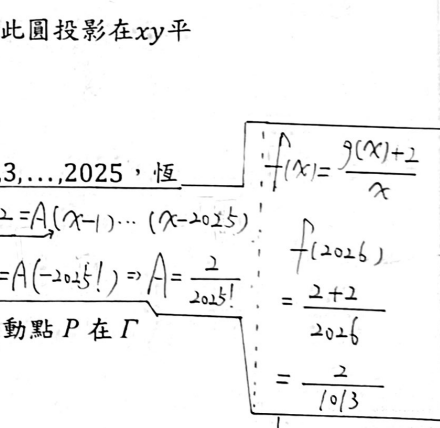 此圓投影在xy平
3,...,2025，恆
2=A(x-1)…(x-2025)
=A(-2025!)⇒A=2/2025!
動點 P 在 Γ
f(x)=g(x)+2/x
f(2026)
=2+2/2026
=2/1013